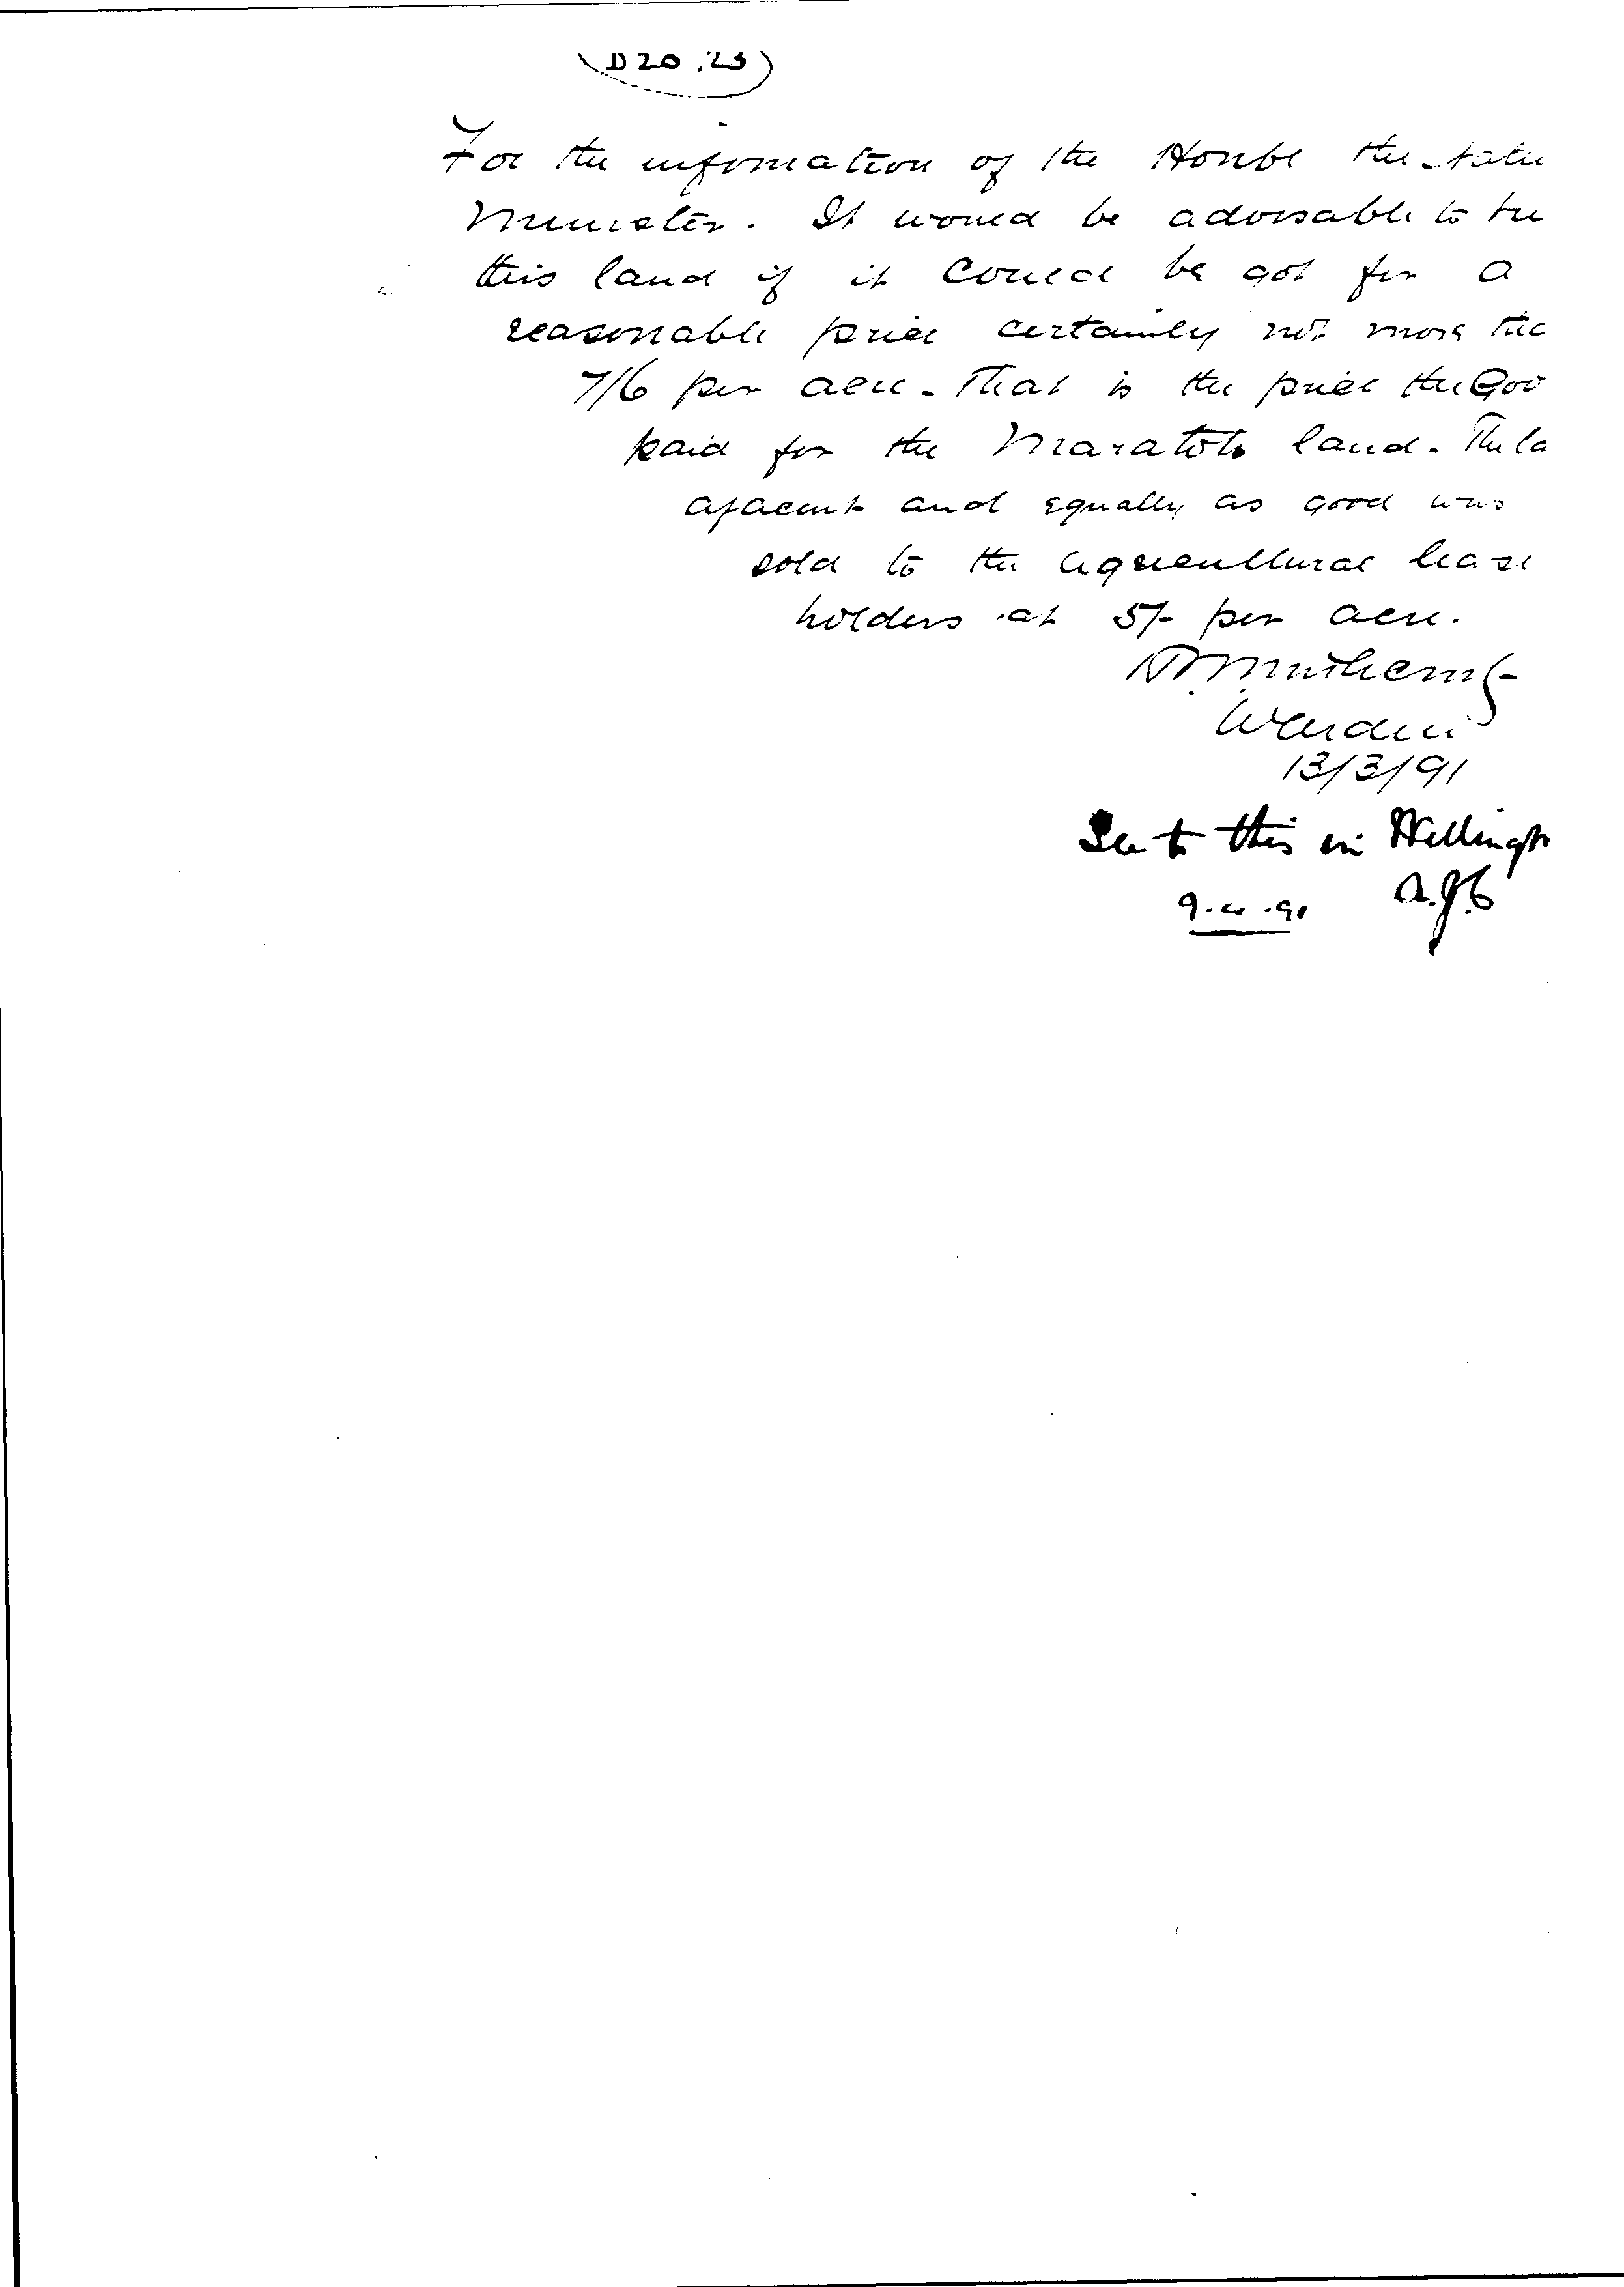 D20.23
For the information of the Honble the Native
Minister. It would be advisable to
this land if it could be got for a
reasonable price certainly not more
7/6 per acre. That is the price the Gov
paid for the Maratoto land. The la
ajacent and equally as good was
sold to the agricultural lease
holders at 5/- per acre.
Warden
13/3/91
See to this in Wellingtn
9.4.91 A.J.C